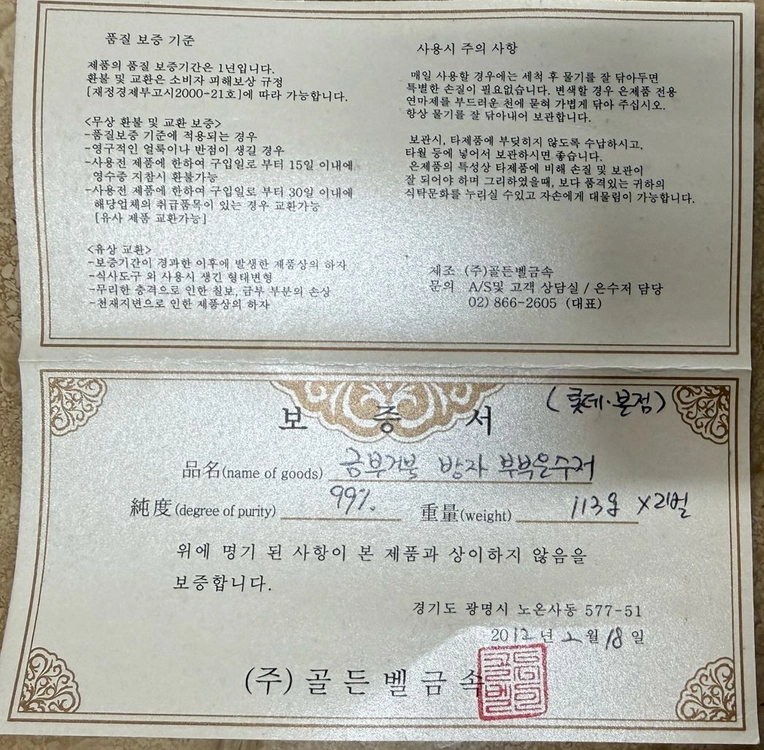 품질 보증 기준
제품의 품질 보증기간은 1년입니다.
환불 및 교환은 소비자 피해보상 규정
[재정경제부고시2000-21호]에 따라 가능합니다.
<무상 환불 및 교환 보증>
-품질보증 기준에 적용되는 경우
-영구적인 얼룩이나 반점이 생길 경우
-사용전 제품에 한하여 구입일로 부터 15일 이내에
영수증 지참시 환불가능
-사용전 제품에 한하여 구입일로 부터 30일 이내에
해당업체의 취급품목이 있는 경우 교환가능
[유사 제품 교환가능]
<유상 교환>
-보증기간이 경과한 이후에 발생한 제품상의 하자
-식사도구 외 사용시 생긴 형태변형
-무리한 충격으로 인한 칠보, 금부 부분의 손상
-천재지변으로 인한 제품상의 하자
사용시 주의 사항
매일 사용할 경우에는 세척 후 물기를 잘 닦아두면
특별한 손질이 필요없습니다. 변색할 경우 은제품 전용
연마제를 부드러운 천에 묻혀 가볍게 닦아 주십시오.
항상 물기를 잘 닦아내어 보관합니다.
보관시, 타제품에 부딪히지 않도록 수납하시고,
타월 등에 넣어서 보관하시면 좋습니다.
은제품의 특성상 타제품에 비해 손질 및 보관이
잘 되어야 하며 그리하였을때, 보다 품격있는 귀하의
식탁문화를 누리실 수있고 자손에게 대물림이 가능합니다.
제조 (주)골든벨금속
문의 A/S및 고객 상담실 / 은수저 담당
02) 866-2605 (대표)
보 증 서
(롯데·본점)
品名(name of goods) 금부거북 방자 부부은수저
純度(degree of purity) 99%. 重量(weight) 113g X2벌
위에 명기 된 사항이 본 제품과 상이하지 않음을
보증합니다.
경기도 광명시 노온사동 577-51
2012년 2월 18일
(주) 골든벨금속